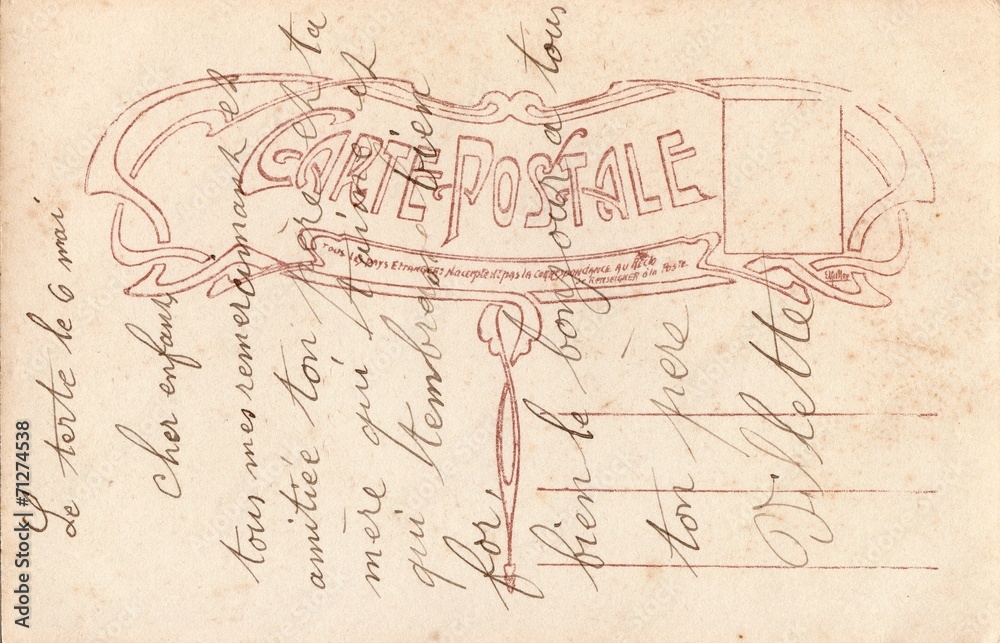 CARTE POSTALE
TOUS LES PAYS ETRANGERS N'ACCEPTENT PAS LA CORRESPONDANCE AU RECTO
Se Renseigner à la Poste
Le terte le 6 mai
cher enfants
tous mes remerciemant et
amitiée ton père et ta
mère qui
qui tembrese bien
for
bien le bonjour a tous
ton père
Villette
Adobe Stock | #71274538
Adobe Stock